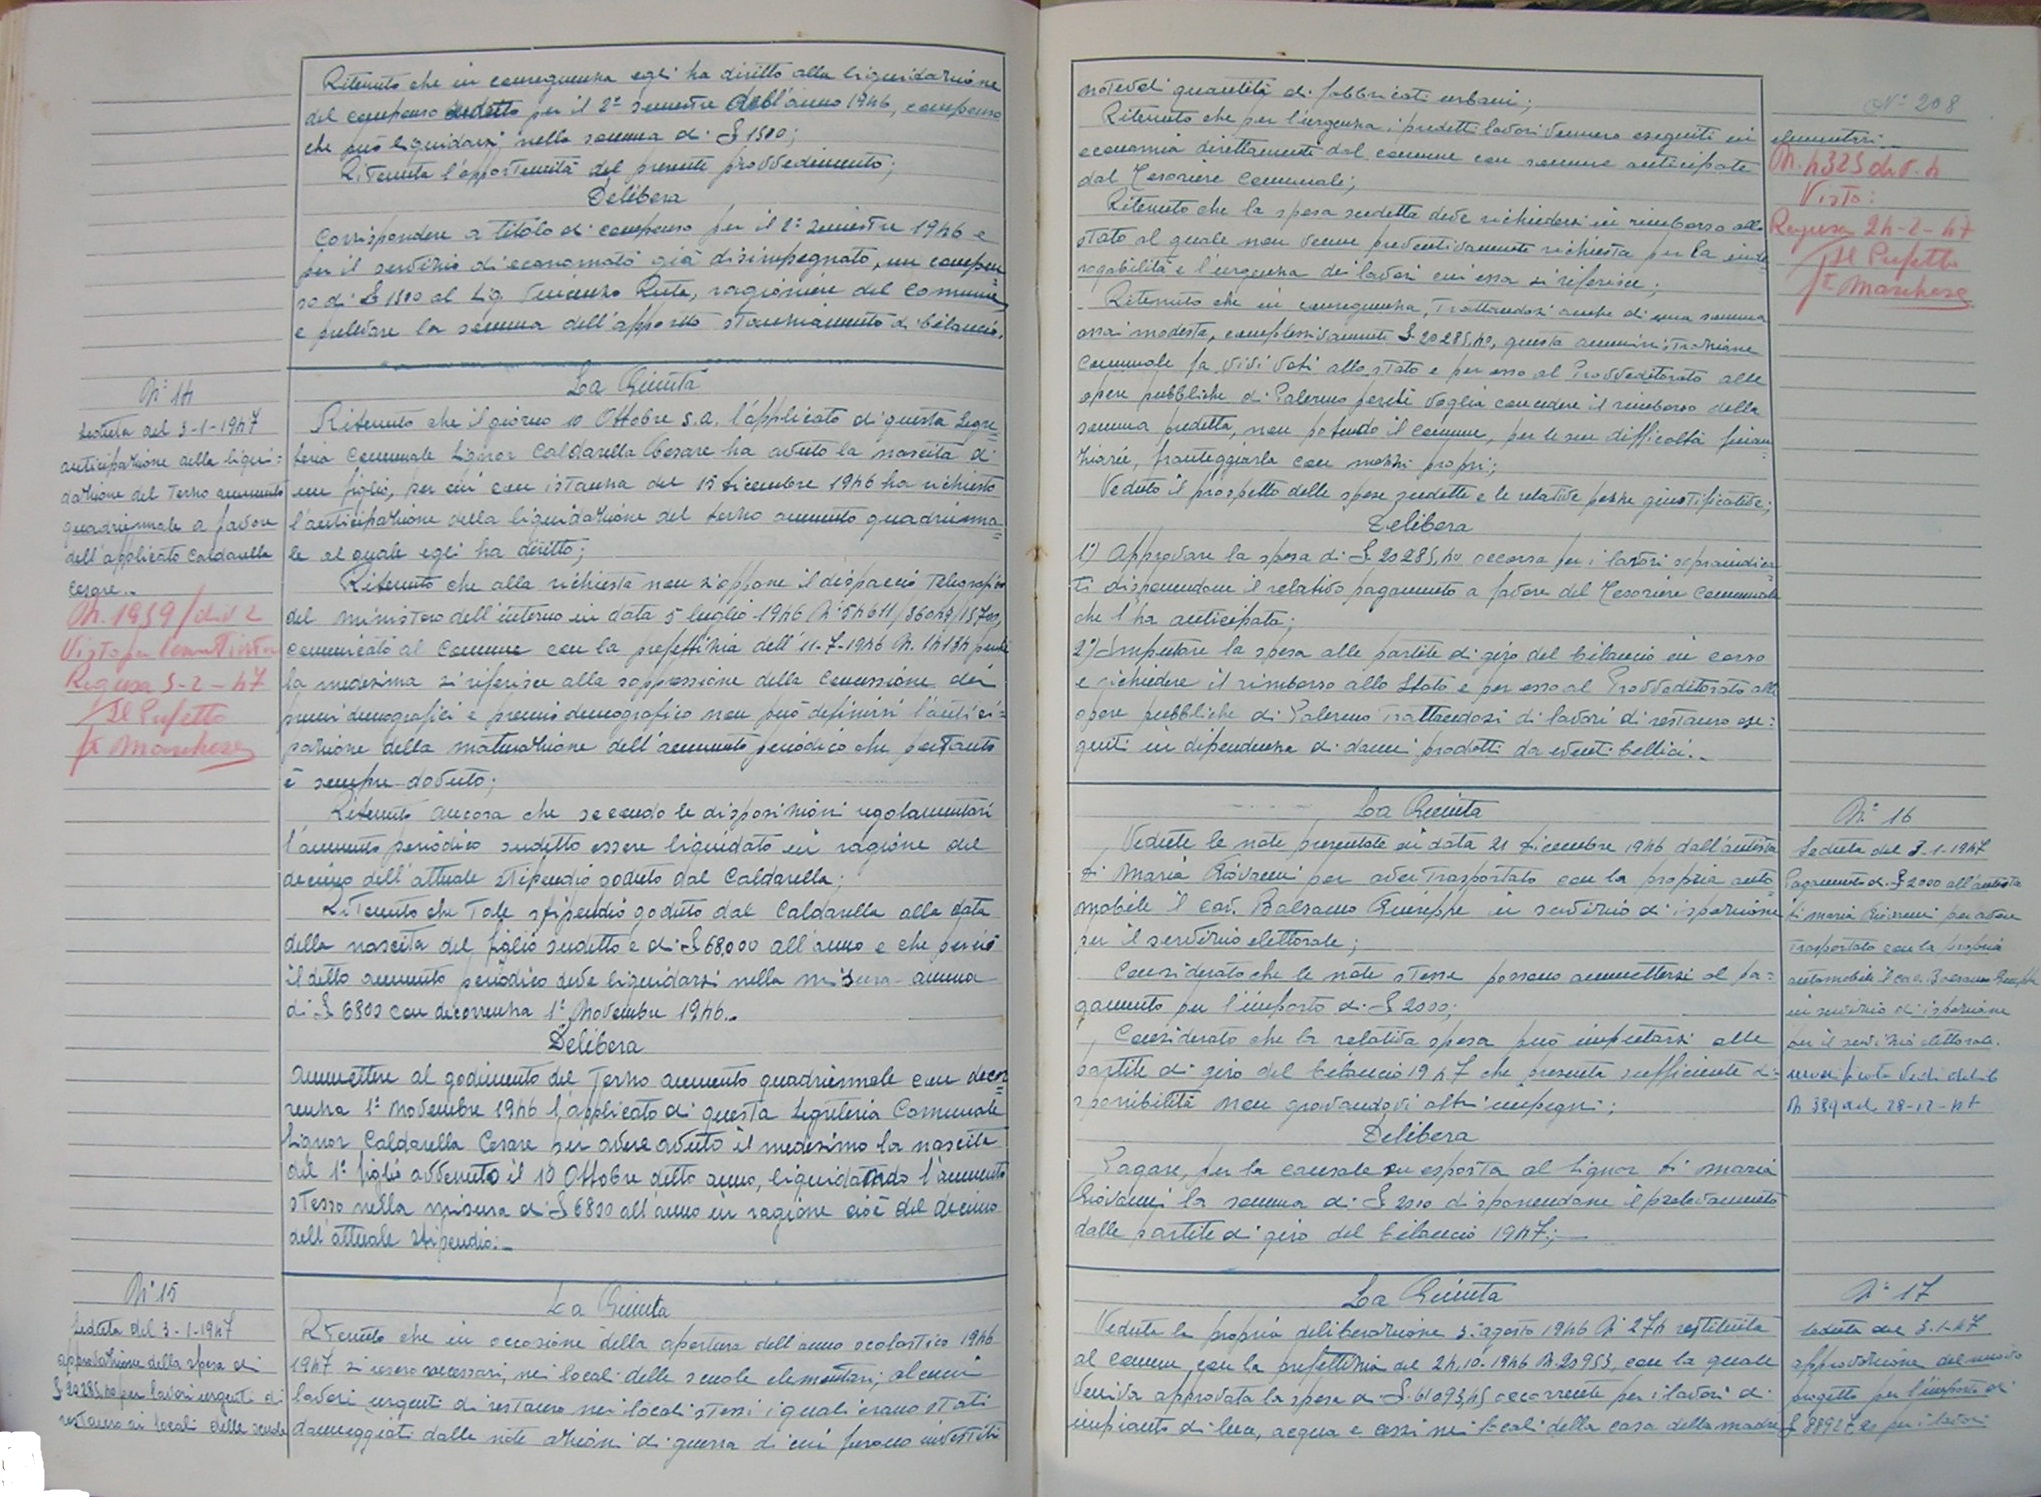 Ritenuto che in conseguenza egli ha diritto alla liquidazione
del compenso sudetto per il 2° semestre dell'anno 1946, compenso
che può liquidarsi nella somma di £ 1500;
Ritenuta l'opportunità del presente provvedimento;
Delibera
Corrispondere a titolo di compenso per il 2° semestre 1946 e
per il servizio di economato già disimpegnato, un compen=
so di £ 1500 al Sig. Vincenzo Ruta, ragioniere del Comune,
e prelevare la somma dell'apposito stanziamento di bilancio.
N° 14
Seduta del 3-1-1947
anticipazione della liqui=
dazione del terzo aumento
quadriennale a favore
dell'applicato Caldarella
Cesare..
N. 1959/div 2
Visto per
Ragusa 3-2-47
Il Prefetto
ft Marchese
La Giunta
Ritenuto che il giorno 10 Ottobre s.a. l'applicato di questa Segre=
teria Comunale Signor Caldarella Cesare ha avuto la nascita di
un figlio, per cui con istanza del 15 dicembre 1946 ha richiesto
l'anticipazione della liquidazione del terzo aumento quadrienna=
le al quale egli ha diritto;
Ritenuto che alla richiesta non si oppone il dispaccio telegrafico
del ministero dell'interno in data 5 luglio 1946 N°
comunicato al Comune con la prefettizia dell'11-7-1946 N. 14134 perché
la medesima si riferisce alla soppressione della concessione dei
premi demografici e premio demografico non può definirsi l'antici=
pazione della maturazione dell'aumento periodico che pertanto
è sempre dovuto;
Ritenuto ancora che secondo le disposizioni regolamentari
l'aumento periodico sudetto essere liquidato in ragione del
decimo dell'attuale stipendio goduto dal Caldarella;
Ritenuto che tale stipendio goduto dal Caldarella alla data
della nascita del figlio sudetto è di £ 68.000 all'anno e che perciò
il detto aumento periodico deve liquidarsi nella misura annua
di £ 6800 con decorrenza 1° Novembre 1946..
Delibera
Ammettere al godimento del terzo aumento quadriennale con decor
renza 1° Novembre 1946 l'applicato di questa Segreteria Comunale
Signor Caldarella Cesare per avere avuto il medesimo la nascita
del 1° figlio avvenuto il 10 Ottobre detto anno, liquidando l'aumento
stesso nella misura di £ 6800 all'anno in ragione cioè del decimo
dell'attuale stipendio..
N° 15
Seduta del 3-1-1947
approvazione della spesa di
£ 20285,40 per lavori urgenti di
restauro ai locali delle scuole
La Giunta
Ritenuto che in occasione della apertura dell'anno scolastico 1946
1947 si resero necessari, nei locali delle scuole elementari, alcuni
lavori urgenti di restauro nei locali stessi i quali erano stati
danneggiati dalle note azioni di guerra di cui furono investiti
N° 208
notevoli quantità di fabbricati urbani;
Ritenuto che per l'urgenza i predetti lavori vennero eseguiti in
economia direttamente dal comune con somme anticipate
dal Tesoriere Comunale;
Ritenuto che la spesa sudetta deve richiedersi in rimborso allo
stato al quale non venne preventivamente richiesta per la inde=
rogabilità e l'urgenza dei lavori cui essa si riferisce;
Ritenuto che in conseguenza, trattandosi anche di una somma
assai modesta, complessivamente £ 20285,40, questa amministrazione
Comunale fa vivi voti allo stato e per esso al Provveditorato alle
opere pubbliche di Palermo perché voglia concedere il rimborso della
somma predetta, non potendo il comune, per le sue difficoltà finan=
ziarie, fronteggiarla con mezzi propri;
Veduto il prospetto delle spese sudette e le relative pezze giustificative;
Delibera
1°) Approvare la spesa di £ 20285,40 occorsa per i lavori sopraindica=
ti disponendone il relativo pagamento a favore del Tesoriere Comunale
che l'ha anticipata;
2°) Imputare la spesa alle partite di giro del bilancio in corso
e richiedere il rimborso allo Stato e per esso al Provveditorato alle
opere pubbliche di Palermo trattandosi di lavori di restauro ese=
guiti in dipendenza di danni prodotti da eventi bellici..
elementari..
N. 4325 div. 4
Visto:
Ragusa 24-2-47
Il Prefetto
ft Marchese
La Giunta
Vedute le note presentate in data 21 dicembre 1946 dall'autista
Di Maria Giovanni per aver trasportato con la propria auto=
mobile il cav. Balsamo Giuseppe in servizio di ispezione
per il servizio elettorale;
Considerato che le note stesse possono ammettersi al pa=
gamento per l'importo di £ 2000;
Considerato che la relativa spesa può imputarsi alle
partite di giro del bilancio 1947 che presenta sufficiente di=
sponibilità non gravandovi altri impegni;
Delibera
Pagare, per la causale su esposta al Signor Di Maria
Giovanni la somma di £ 2000 disponendone il prelevamento
dalle partite di giro del bilancio 1947;
N° 16
Seduta del 3-1-1947
Pagamento di £ 2000 all'autista
Di Maria Giovanni per avere
trasportato con la propria
automobile il cav. Balsamo Giuseppe
in servizio di ispezione
per il servizio elettorale.
Vedi delib
N 389 del 28-12-47
La Giunta
Veduta la propria deliberazione 3 agosto 1946 N° 274 restituita
al comune con la prefettizia del 24.10.1946 N. 20953, con la quale
veniva approvata la spesa di £. 61093,45 occorrente per i lavori di
impianto di luce, acqua e cessi nei locali della casa della madre
N° 17
Seduta del 3.1.47
approvazione del nuovo
progetto per l'importo di
£ 88927,20 per i lavori